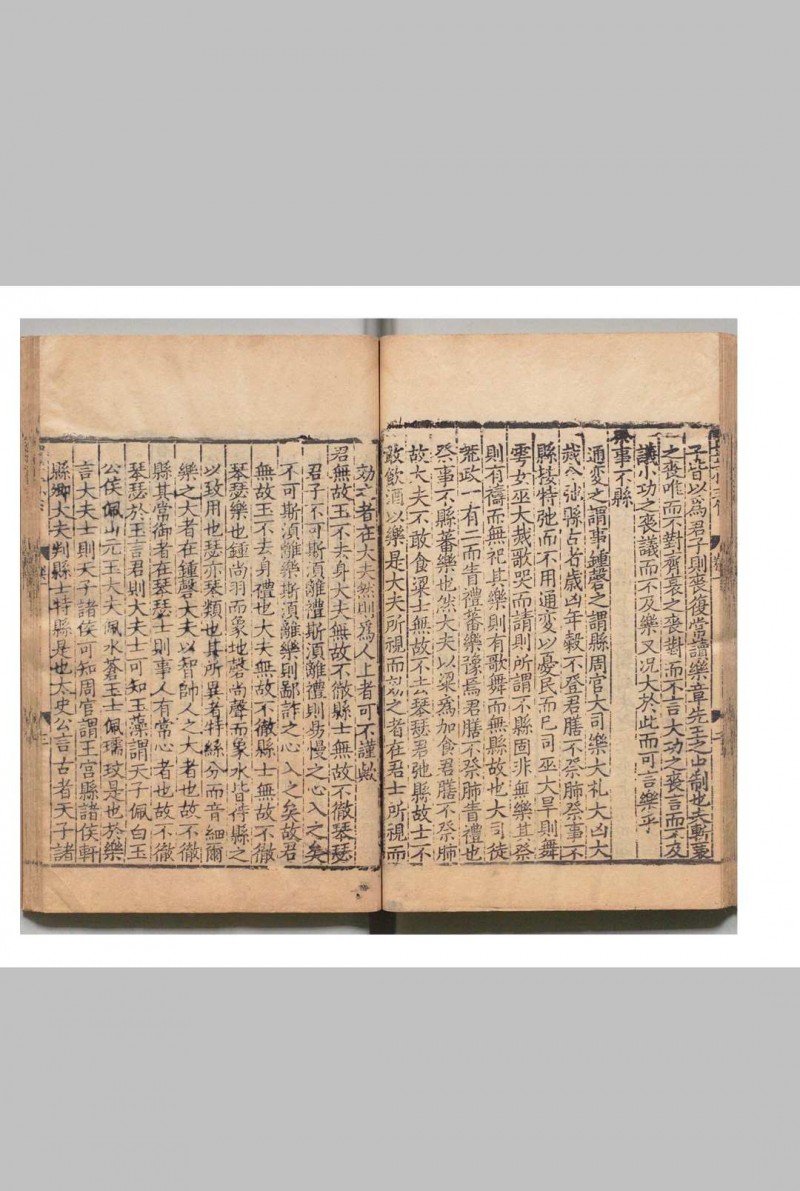 子皆以爲君子則喪復常讀樂章先王之制也夫斬衰
之喪唯而不對齊衰之喪對而不言大功之喪言而不及
議小功之喪議而不及樂又况大於此而可言樂乎
祭事不縣
通變之謂事鍾磬之謂縣周官大司樂大札大凶大
烖令弛縣占者歲凶年穀不登君膳不祭肺祭事不
縣接特弛而不用通變以憂民而已司巫大旱則舞
雩女巫大烖歌哭而請則所謂不縣固非無樂其祭
則有禱而無祀其樂則有歌舞而無縣故也大司徒
荒政一有二而眚禮蕃樂豫焉君膳不祭肺眚禮也
祭事不縣蕃樂也然大夫以梁爲加食君膳不祭肺
故大夫不敢食梁士無故不去琴瑟君弛縣故士不
敢飲酒以樂是大夫所視而效之者在君士所視而
効之者在大夫然則爲人上者可不謹歟
君無故玉不去身大夫無故不徹縣士無故不徹琴瑟
君子不可斯湏離禮斯湏離禮則易慢之心入之矣
不可斯湏離樂斯湏離樂則鄙詐之心入之矣故君
無故玉不去身禮也大夫無故不徹縣士無故不徹
琴瑟樂也鍾尚羽而象地磬尚聲而象水皆待縣之
以致用也瑟亦琴類也其所異者特絲分而音細爾
樂之大者在鍾磬大夫以智帥人之大者也故不徹
縣其常御者在琴瑟士則事人有常心者也故不徹
琴瑟於玉言君則大夫士可知玉藻謂天子佩白玉
公侯佩山元玉大夫佩水蒼玉士佩瓀玟是也於樂
言大夫士則天子諸侯可知周官謂王宫縣諸侯軒
縣卿大夫判縣士特縣是也太史公言古者天子諸